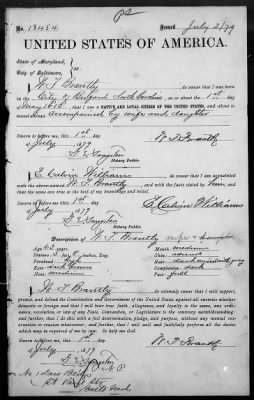 No. 13454. Issued July 2/79
UNITED STATES OF AMERICA.
State of Maryland,
City of Baltimore, } ss:
I, W. T. Brantly, do swear that I was born
in the City of Beaufort South Carolina, on or about the 1st day
of May 1816; that I am a NATIVE AND LOYAL CITIZEN OF THE UNITED STATES, and about to
travel abroad accompanied by wife and daughter
Sworn to before me, this 1st day
of July 1879 W. T. Brantly
Notary Public.
I, E. Calvin Williams, do swear that I am acquainted
with the above-named W. T. Brantly, and with the facts stated by him, and
that the same are true to the best of my knowledge and belief.
Sworn to before me, this 1st day
of July 1879 E. Calvin Williams
Notary Public.
Description of W. T. Brantly
Age: 63 years Mouth: medium
Stature: 5 feet inches, Eng. Chin: round
Forehead: high Hair:
Eyes: dark brown Complexion: dark
Nose: Face: full
I, W. T. Brantly do solemnly swear that I will support,
protect, and defend the Constitution and Government of the United States against all enemies, whether
domestic or foreign; and that I will bear true faith, allegiance, and loyalty to the same, any ordinance,
resolution, or law of any State, Convention, or Legislature to the contrary notwithstanding;
and further, that I do this with a full determination, pledge, and purpose, without any mental
reservation or evasion whatsoever; and further, that I will well and faithfully perform all the duties
which may be required of me by law. So help me God.
Sworn to before me, this 1st day
of July 1879 W. T. Brantly
N.P.